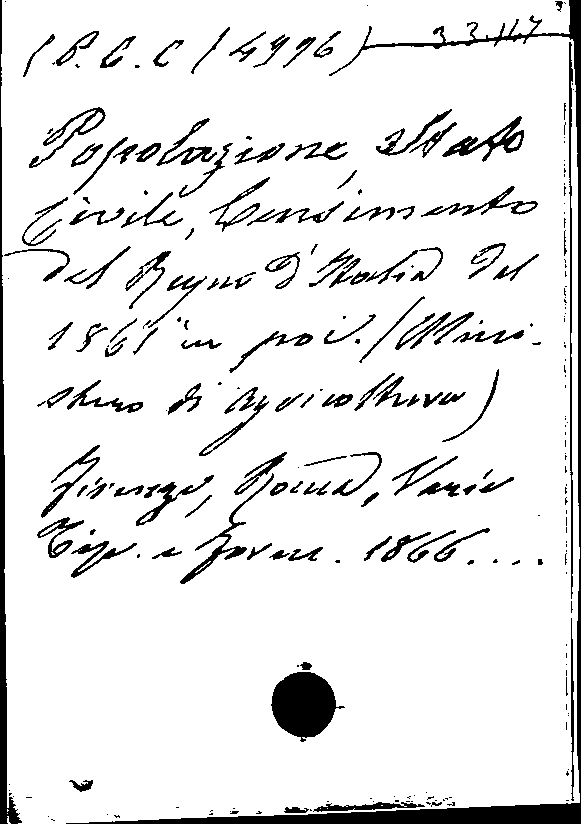 (P. C. C / 4996) 3.3.117
Popolazione, Stato
Civile, Censimento
del Regno d'Italia dal
1861 in poi. (Mini-
stero di Agricoltura)
Firenze, Roma, Varie
Tip. e Form. 1866....